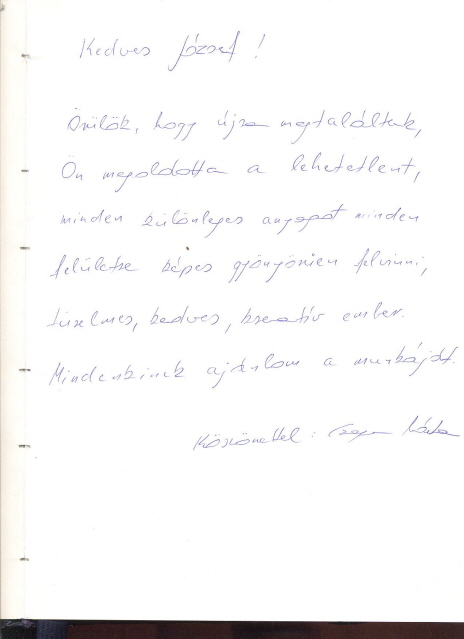 Kedves József!
Örülök, hogy újra megtaláltuk,
Ön megoldotta a lehetetlent,
minden különleges anyagot minden
felületre képes gyönyörűen felvinni,
türelmes, kedves, kreatív ember.
Mindenkinek ajánlom a munkáját.
Köszönettel: